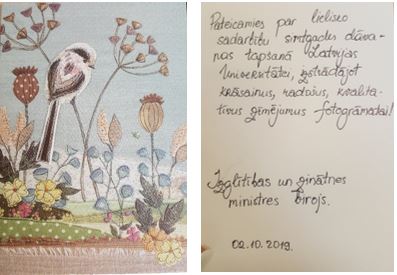 Pateicamies par lielisko
sadarbību simtgades dāva-
nas tapšanā Latvijas
Universitātei, izstrādājot
krāsainus, radošus, kvalita-
tīvus zīmējumus fotogrāmatai!
Izglītības un zinātnes
ministres birojs.
02.10.2019.